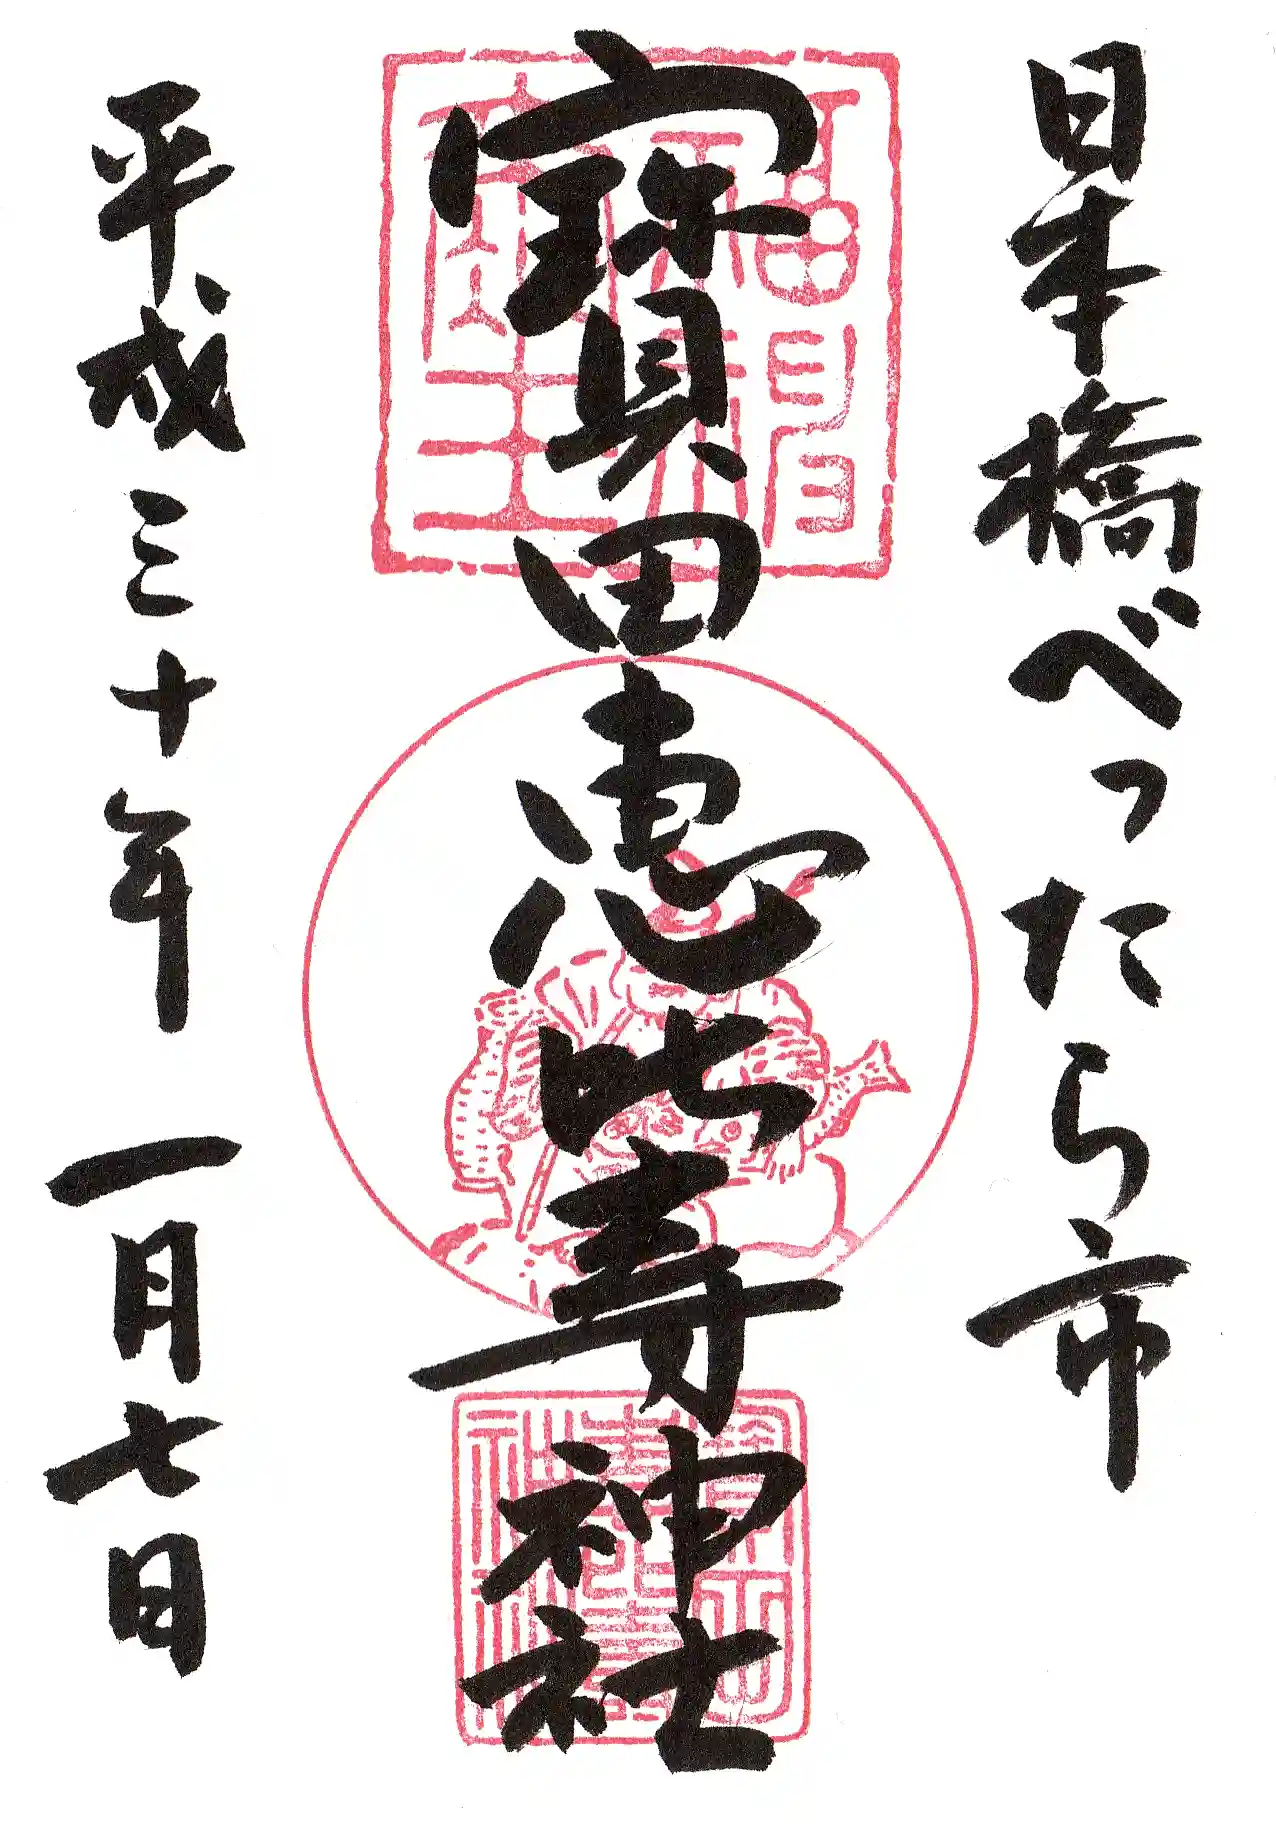 日本橋べったら市
寳田恵比寿神社
平成三十年一月七日